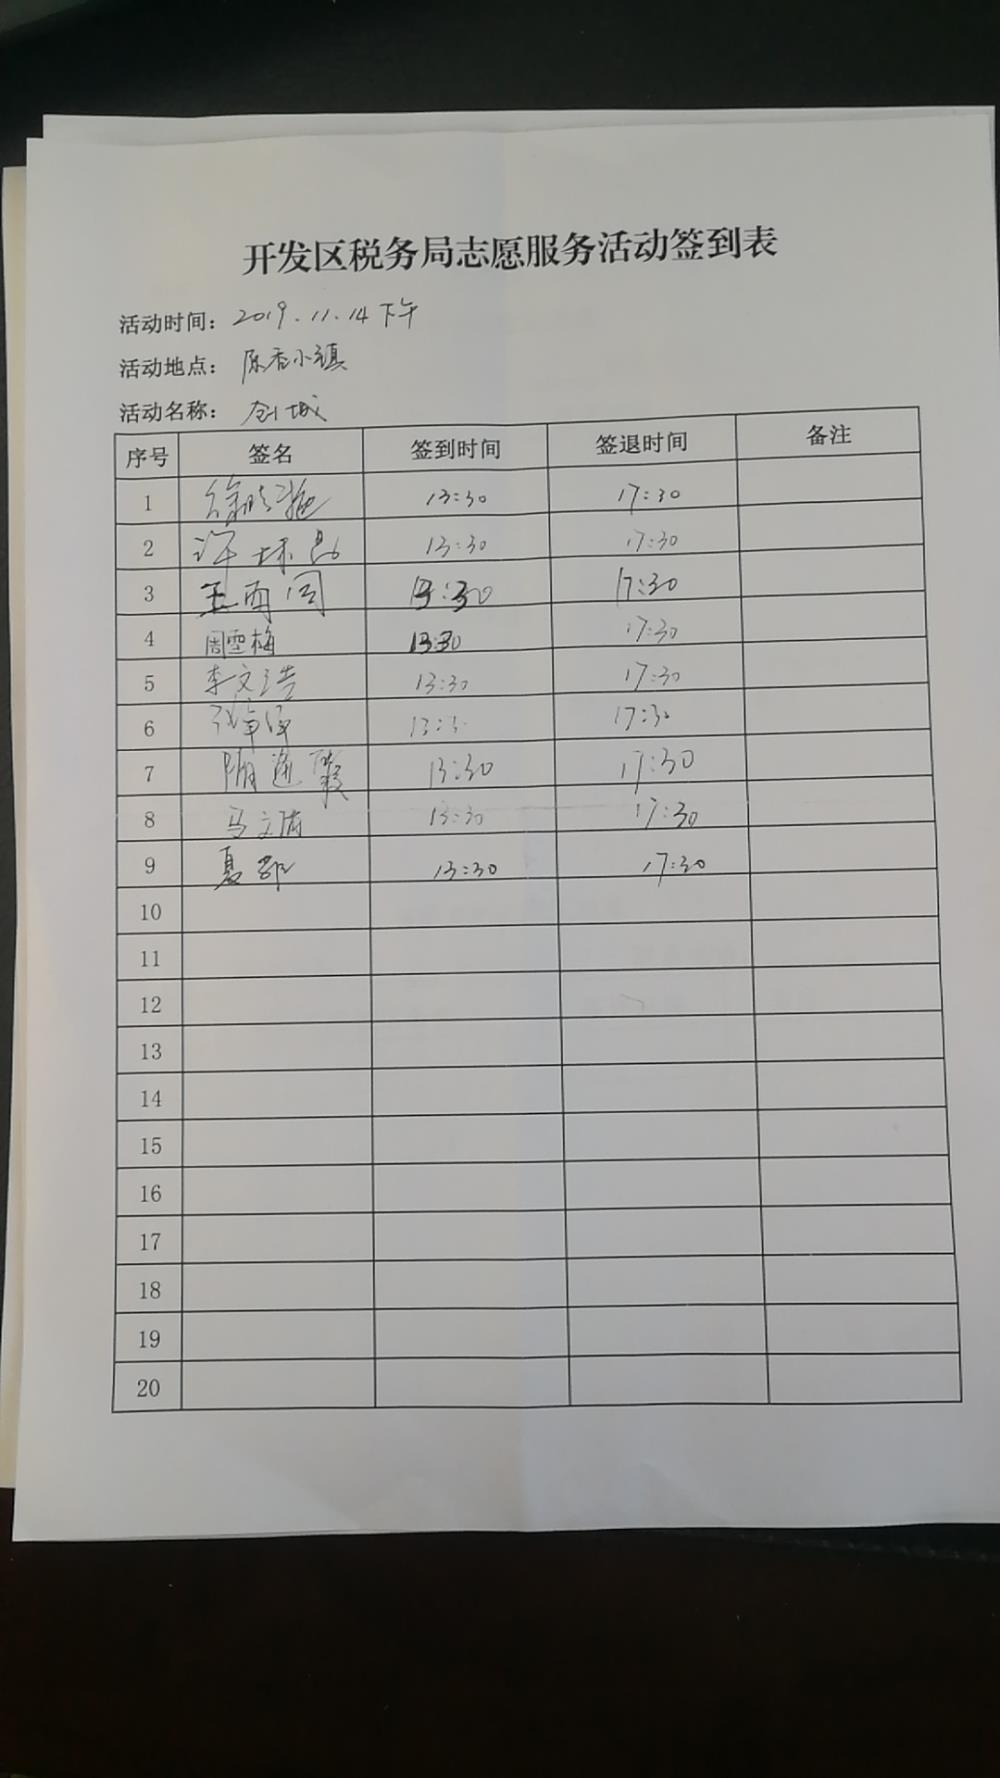 开发区税务局志愿服务活动签到表
活动时间：2019.11.14下午
活动地点：陈香小镇
活动名称：创城
序号 签名 签到时间 签退时间 备注
1 13:30 17:30
2 13:30 17:30
3 王雨同 13:30 17:30
4 周雪梅 13:30 17:30
5 李文浩 13:30 17:30
6 13:30 17:30
7 13:30 17:30
8 马文清 13:30 17:30
9 夏 13:30 17:30
10
11
12
13
14
15
16
17
18
19
20